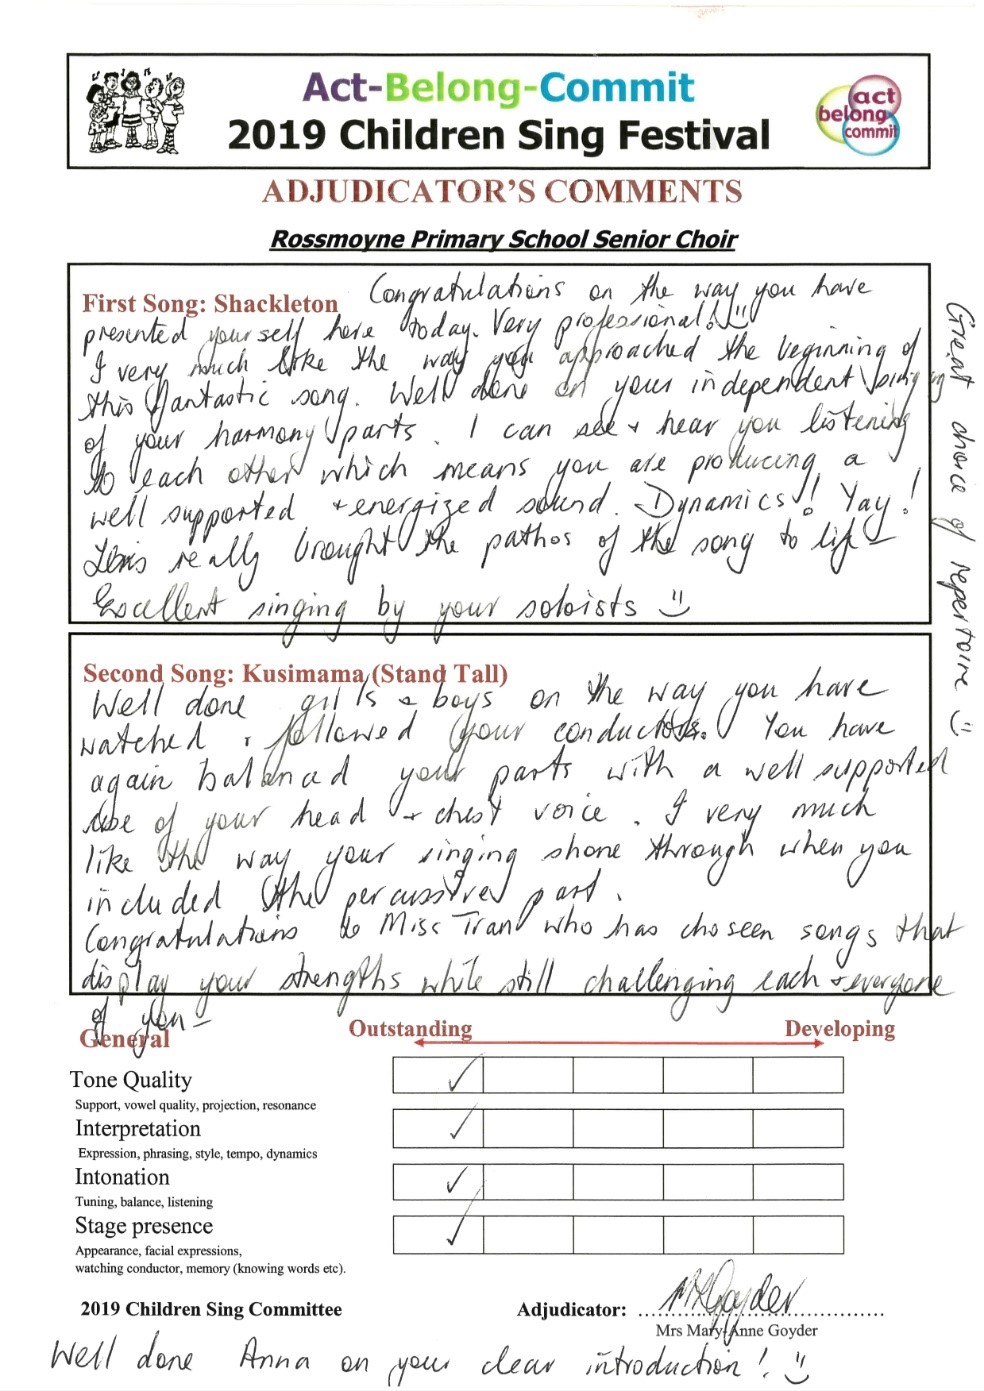 Act-Belong-Commit
2019 Children Sing Festival
act
belong
commit
ADJUDICATOR'S COMMENTS
Rossmoyne Primary School Senior Choir
First Song: Shackleton Congratulations on the way you have
presented yourself here today. Very professional! :)
I very much like the way you approached the beginning of
this fantastic song. Well done on your independent singing
of your harmony parts. I can see + hear you listening
to each other which means you are producing a
well supported + energized sound. Dynamics!! Yay!
This really brought the pathos of the song to life
Excellent singing by your soloists :)
Great choice of repertoire :)
Second Song: Kusimama (Stand Tall)
Well done girls & boys on the way you have
watched + followed your conductor. You have
again balanced your parts with a well supported
use of your head + chest voice. I very much
like the way your singing shone through when you
included the percussive part.
Congratulations to Miss Tran who has choseen songs that
display your strengths while still challenging each + everyone
of you -
General Outstanding Developing
Tone Quality ✓
Support, vowel quality, projection, resonance
Interpretation ✓
Expression, phrasing, style, tempo, dynamics
Intonation ✓
Tuning, balance, listening
Stage presence ✓
Appearance, facial expressions,
watching conductor, memory (knowing words etc).
2019 Children Sing Committee Adjudicator: MAGoyder
Mrs Mary-Anne Goyder
Well done Anna on your clear introduction! :)